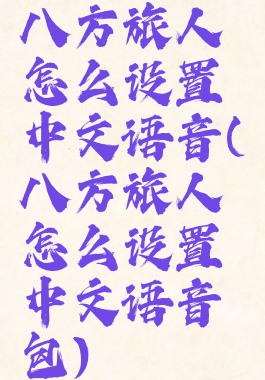 八方旅人
怎么设置
中文语音(
八方旅人
怎么设置
中文语音
包)